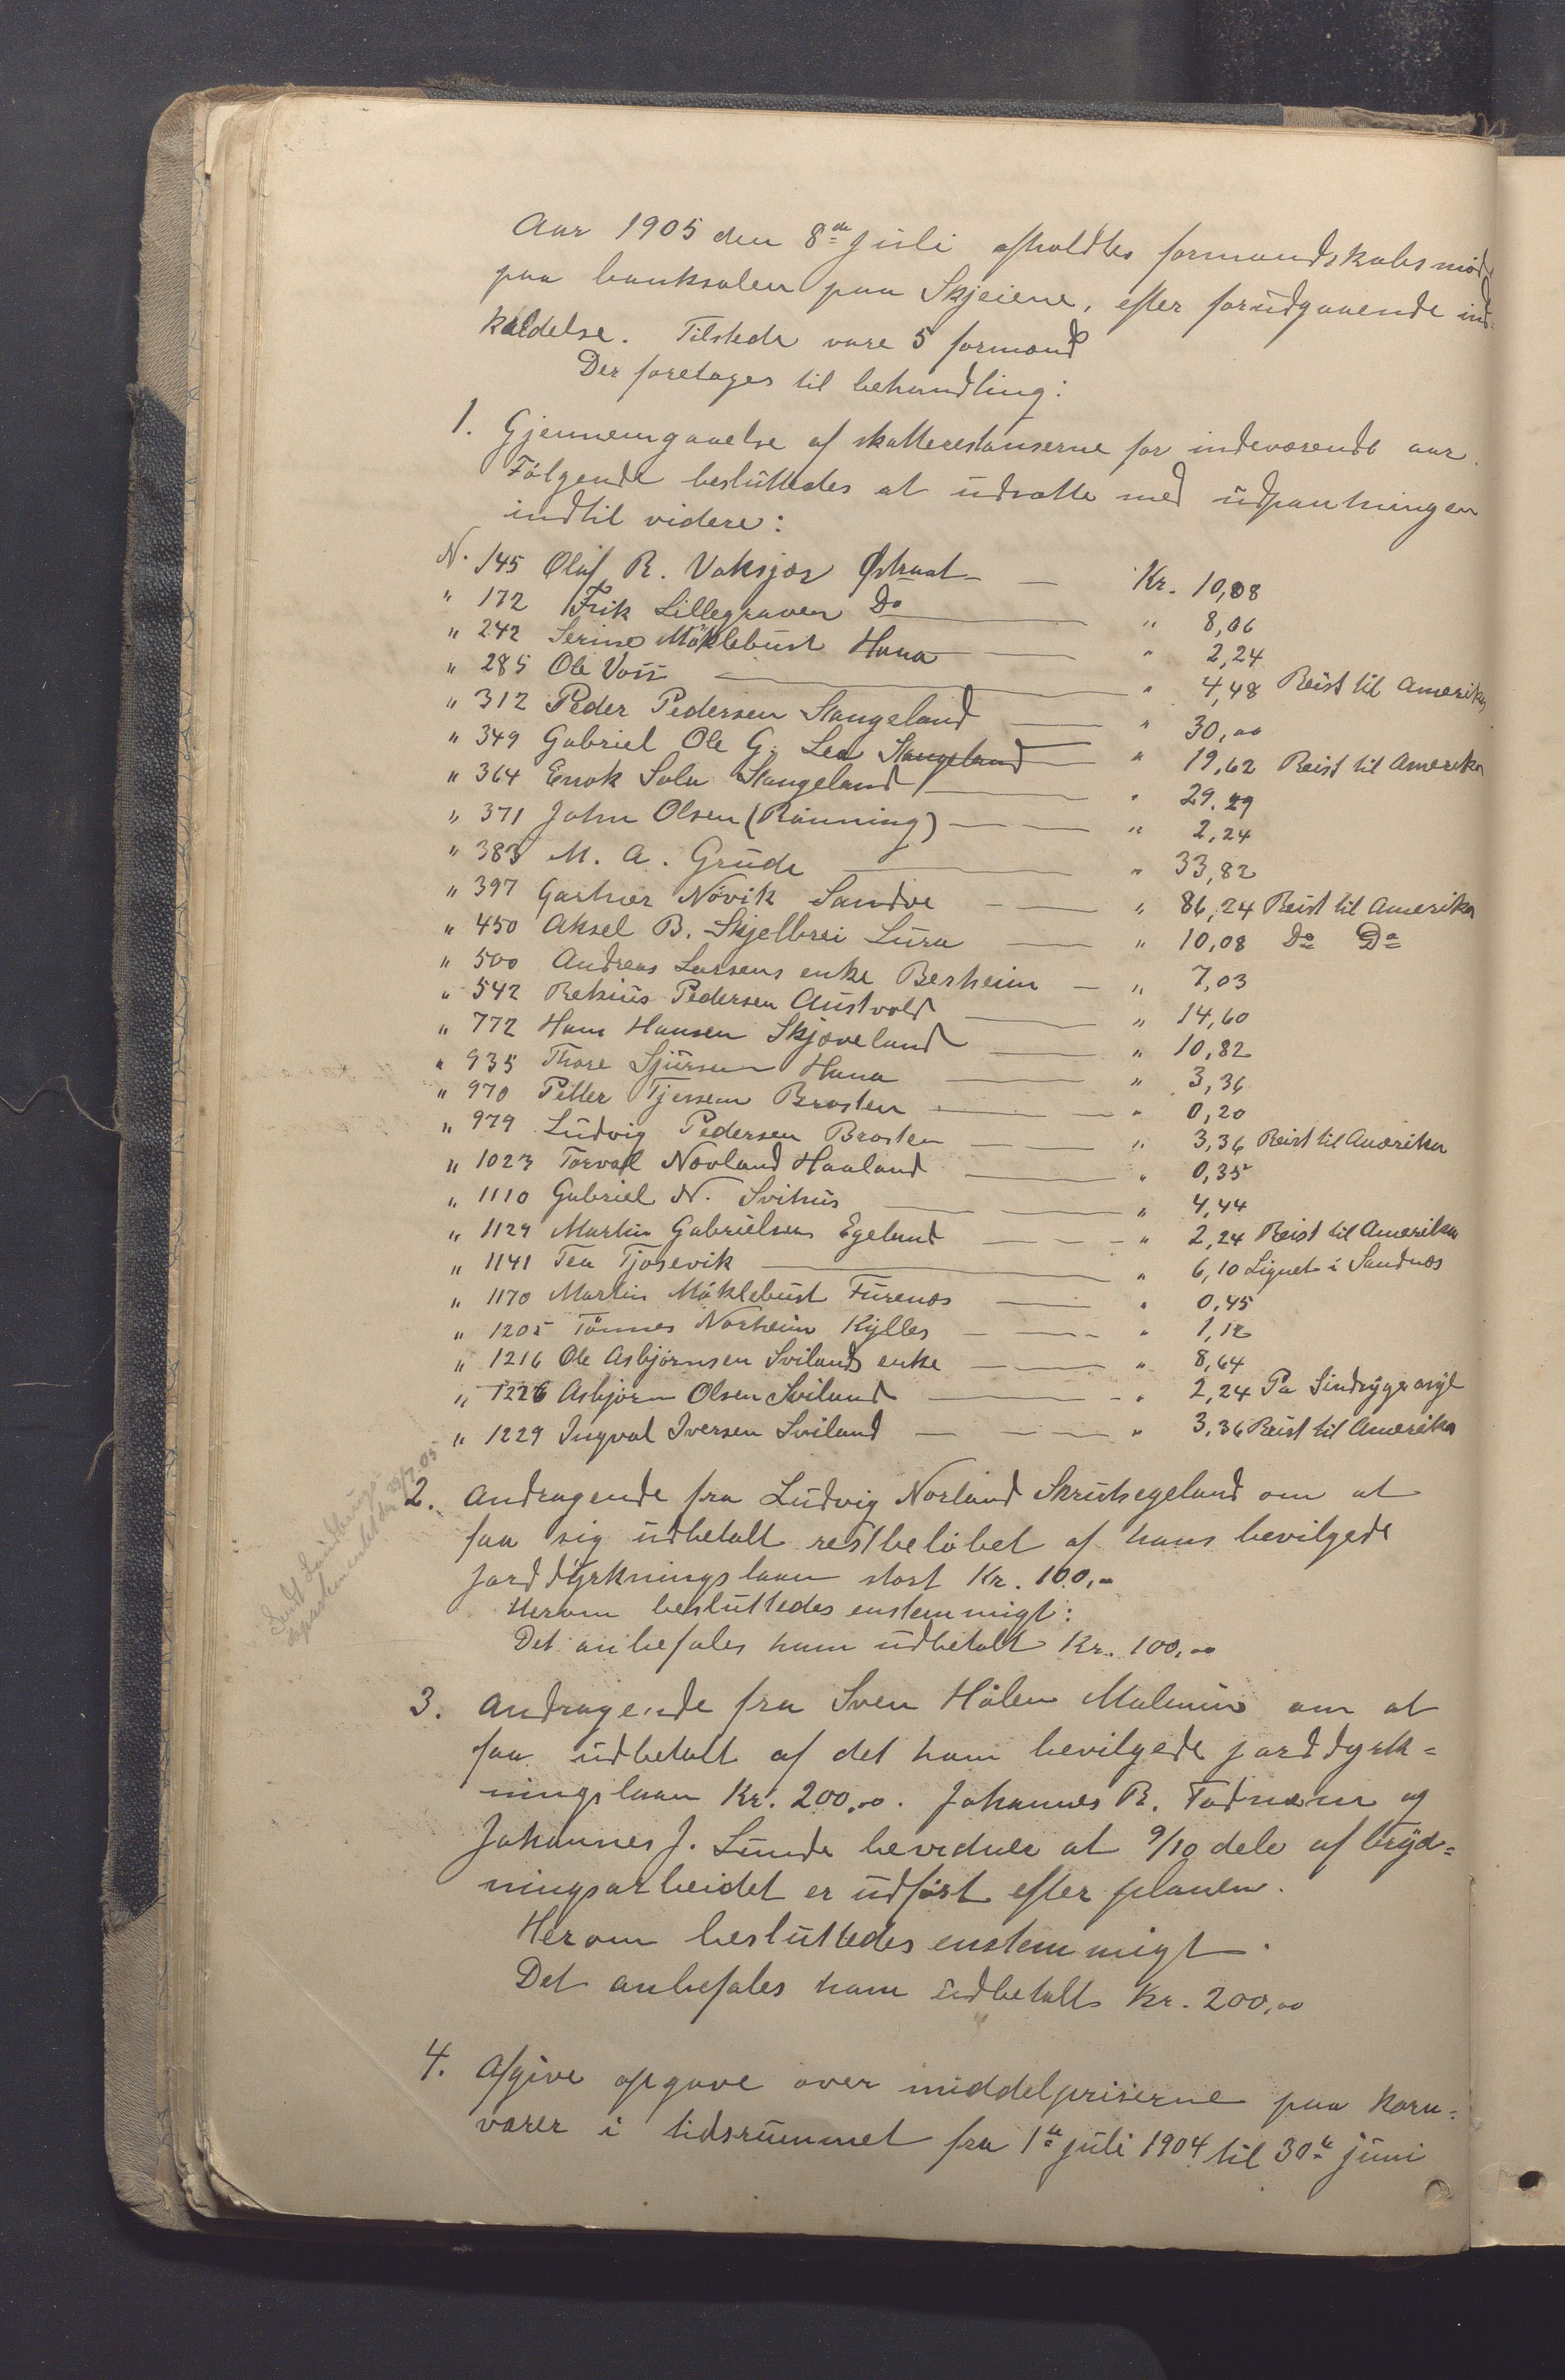 Aar 1905 den 8de juli afholdtes formandskabsmöde
paa banksalen paa Skjeiene, efter forudgaaende ind-
kaldelse. Tilstede vare 5 formænd
Der foretages til behandling:
1. Gjennemgaaelse af skatterestanserne for indeværende aar.
Fölgende besluttedes at udsætte med udpantningen
indtil videre:
N. 145 Olaf R. Vaksjær Østraat — — Kr. 10,08
" 172 Erik Lillegraven Do — " 8,06
" 242 Serine Möklebust Hana — — " 2,24
" 285 Ole Voss — " 4,48 Reist til Amerika
" 312 Peder Pedersen Stangeland — " 30,00
" 349 Gabriel Ole G. Lea Stangeland — " 19,62 Reist til Amerika
" 364 Enok Sola Stangeland — " 29,29
" 371 John Olsen (Rönning) — — " 2,24
" 383 M. A. Grude — " 33,82
" 397 Gartner Növik Sandve — — " 86,24 Reist til Amerika
" 450 Aksel B. Skjelbrei Lura — " 10,08 Do Do
" 500 Andreas Larsens enke Berheim — " 7,03
" 542 Retsius Pedersen Austvold — " 14,60
" 772 Hans Hansen Skjæveland — " 10,82
" 935 Thore Sjursen Hana — " 3,36
" 970 Petter Tjessem Brasten — — " 0,20
" 979 Ludvig Pedersen Brasten — — " 3,36 Reist til Amerika
" 1023 Torvald Novland Haaland — " 0,35
" 1110 Gabriel N. Svihus — — " 4,44
" 1129 Martin Gabrielsen Egeland — — - " 2,24 Reist til Amerika
" 1141 Tea Tjosevik — " 6,10 Lignet i Sandnæs
" 1170 Martin Möklebust Furenæs — " 0,45
" 1205 Tönnes Norheim Kylles — — - " 1,12
" 1216 Ole Asbjörnsen Svilands enke — " 8,64
" 1226 Asbjörn Olsen Sviland — - " 2,24 Pa Sindsygeasyl
" 1229 Ingval Iversen Sviland — — — " 3,36 Reist til Amerika
Sendt Landbrugs
departementet den 22/7 05
2. Andragende fra Ludvig Norland Skrudsegeland om at
faa sig udbetalt restbelöbet af hans bevilgede
jorddyrkningslaan stort Kr. 100,-
Herom besluttedes enstemmigt:
Det anbefales ham udbetalt Kr. 100,00
3. Andragende fra Sven Hölen Malmin om at
faa udbetalt af det ham bevilgede jorddyrk=
ningslaan Kr. 200,00. Johannes R. Fodnæm og
Johannes J. Lunde bevidner at 9/10 dele af bryd=
ningsarbeidet er udfört efter planen.
Herom besluttedes enstemmigt.
Det anbefales ham udbetalt Kr. 200,00
4. Afgive opgave over middelpriserne paa korn=
varer i tidsrummet fra 1te juli 1904 til 30te juni